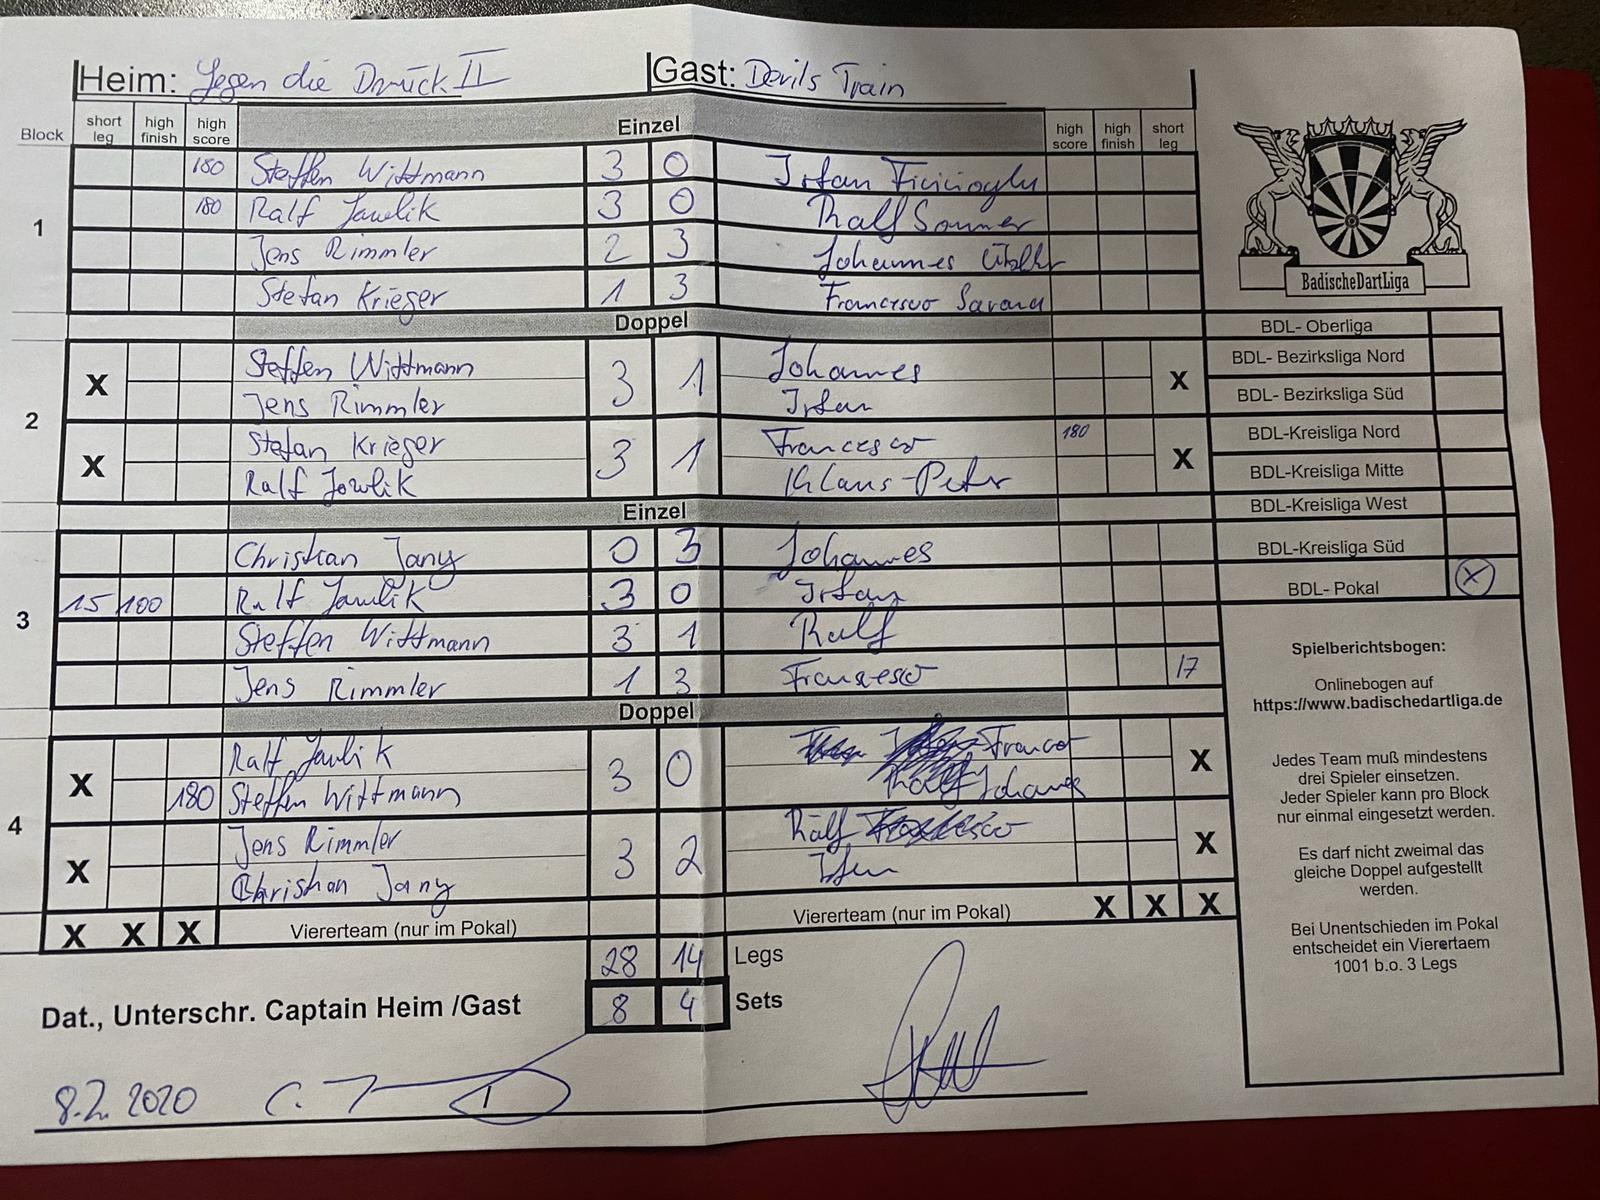 Heim: Gegen die Druck II Gast: Devils Train
Block short leg high finish high score Einzel high score high finish short leg
1
180 Steffen Wittmann 3 0 Irfan
180 Ralf Jawlik 3 0 Ralf Sommer
Jens Rimmler 2 3 Johannes
Stefan Krieger 1 3 Francesco Savana
Doppel
2
X Steffen Wittmann 3 1 Johannes X
Jens Rimmler Irfan
X Stefan Krieger 3 1 Francesco 180 X
Ralf Jawlik Klaus-Peter
Einzel
3
Christian Jany 0 3 Johannes
15 100 Ralf Jawlik 3 0 Irfan
Steffen Wittmann 3 1 Ralf
Jens Rimmler 1 3 Francesco 17
Doppel
4
X Ralf Jawlik 3 0 X
180 Steffen Wittmann Johannes
X Jens Rimmler 3 2 Ralf X
Christian Jany Irfan
X X X Viererteam (nur im Pokal) Viererteam (nur im Pokal) X X X
28 14 Legs
Dat., Unterschr. Captain Heim /Gast 8 4 Sets
8.2.2020
BadischeDartLiga
BDL- Oberliga
BDL- Bezirksliga Nord
BDL- Bezirksliga Süd
BDL-Kreisliga Nord
BDL-Kreisliga Mitte
BDL-Kreisliga West
BDL-Kreisliga Süd
BDL- Pokal X
Spielberichtsbogen:
Onlinebogen auf
https://www.badischedartliga.de
Jedes Team muß mindestens
drei Spieler einsetzen.
Jeder Spieler kann pro Block
nur einmal eingesetzt werden.
Es darf nicht zweimal das
gleiche Doppel aufgestellt
werden.
Bei Unentschieden im Pokal
entscheidet ein Vierertaem
1001 b.o. 3 Legs